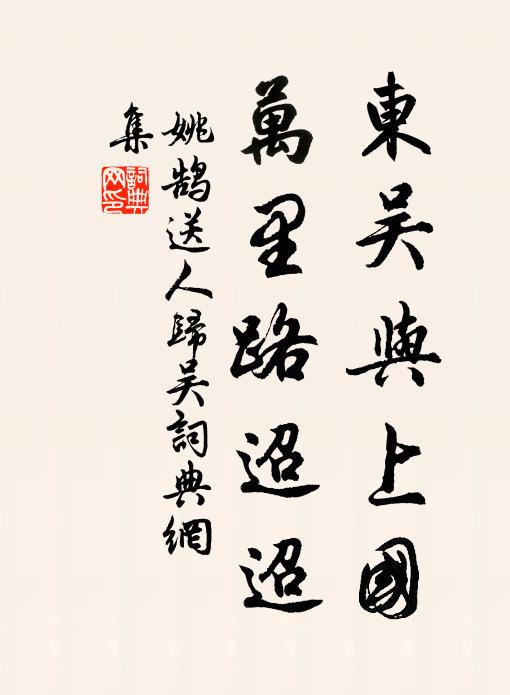 東吳與上國
萬里路迢迢
姚鵠送人歸吳詞典網
集
詞典
网印